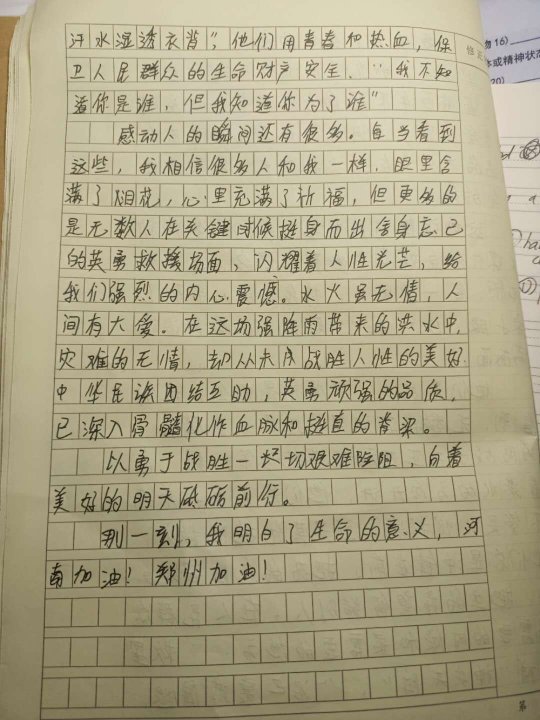 汗水湿透衣背",他们用青春和热血,保
卫人民群众的生命财产安全、"我不知
道你是谁,但我知道你为了谁"
感动人的瞬间还有很多。每当看到
这些,我相信很多人和我一样,眼里含
满了泪花,心里充满了祈福,但更多的
是无数人在关键时候挺身而出舍身忘己
的英勇救援场面,闪耀着人性光芒,给
我们强烈的内心震憾。水火虽无情,人
间有大爱。在这场强阵雨带来的洪水中,
灾难的无情,却从未战胜人性的美好
中华民族团结互助,英勇顽强的品质,
已深入骨髓化作血脉和挺直的脊梁。
以勇于战胜一切艰难险阻,向着
美好的明天砥砺前行。
那一刻,我明白了生命的意义,河
南加油!郑州加油!
修
物16)
体或精神状态
20)
第